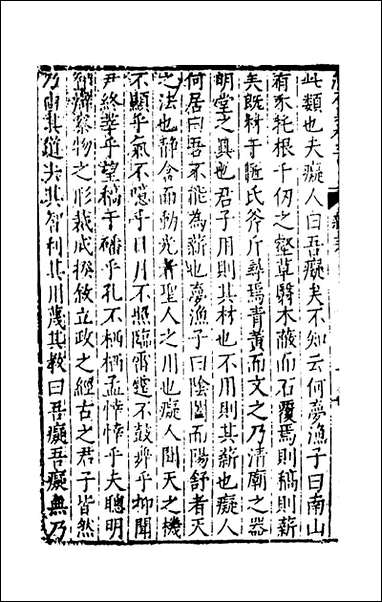 此類也夫癡人曰吾癡矣不知云何夢漁子曰南山
有木托根千仞之壑草翳木蔽而石覆焉則稿則薪
美既材于匠氏斧斤尋焉青黃而文之乃清廟之器
明堂之具也君子用則其材也不用則其薪也癡人
何居曰吾不能為薪也夢漁子曰陰闔而陽舒者天
之法也靜含而動光者聖人之川也癡人聞天之機
不顯乎氣不隱乎日月不照臨雷霆不鼓舞乎抑聞
尹終莘乎望稿于磻乎孔不栖栖孟悻悻乎夫聰明
辨察物之形裁成揆攸立政之經古之君子皆然
乃由其道夫其智利其川蔑其教曰吾癡吾癡無乃